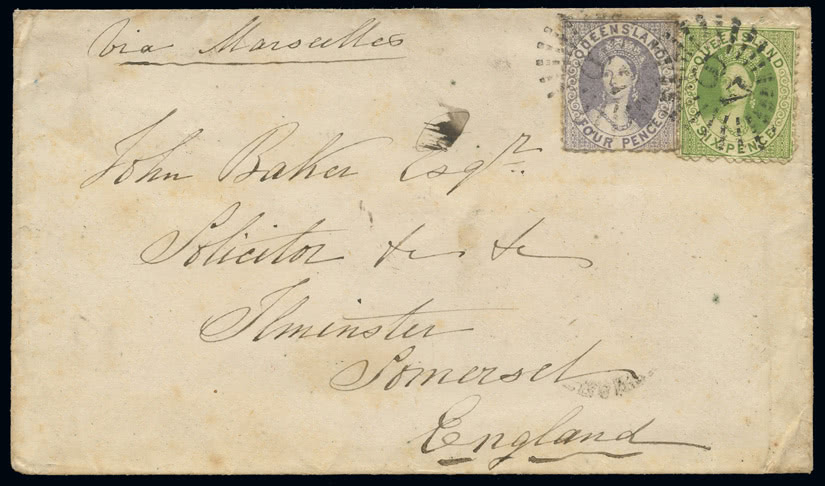 Via Marseilles
QUEENSLAND
FOUR PENCE
QUEENSLAND
SIX PENCE
John Baker Esqr.
Solicitor &c &c
Ilminster
Somerset
England